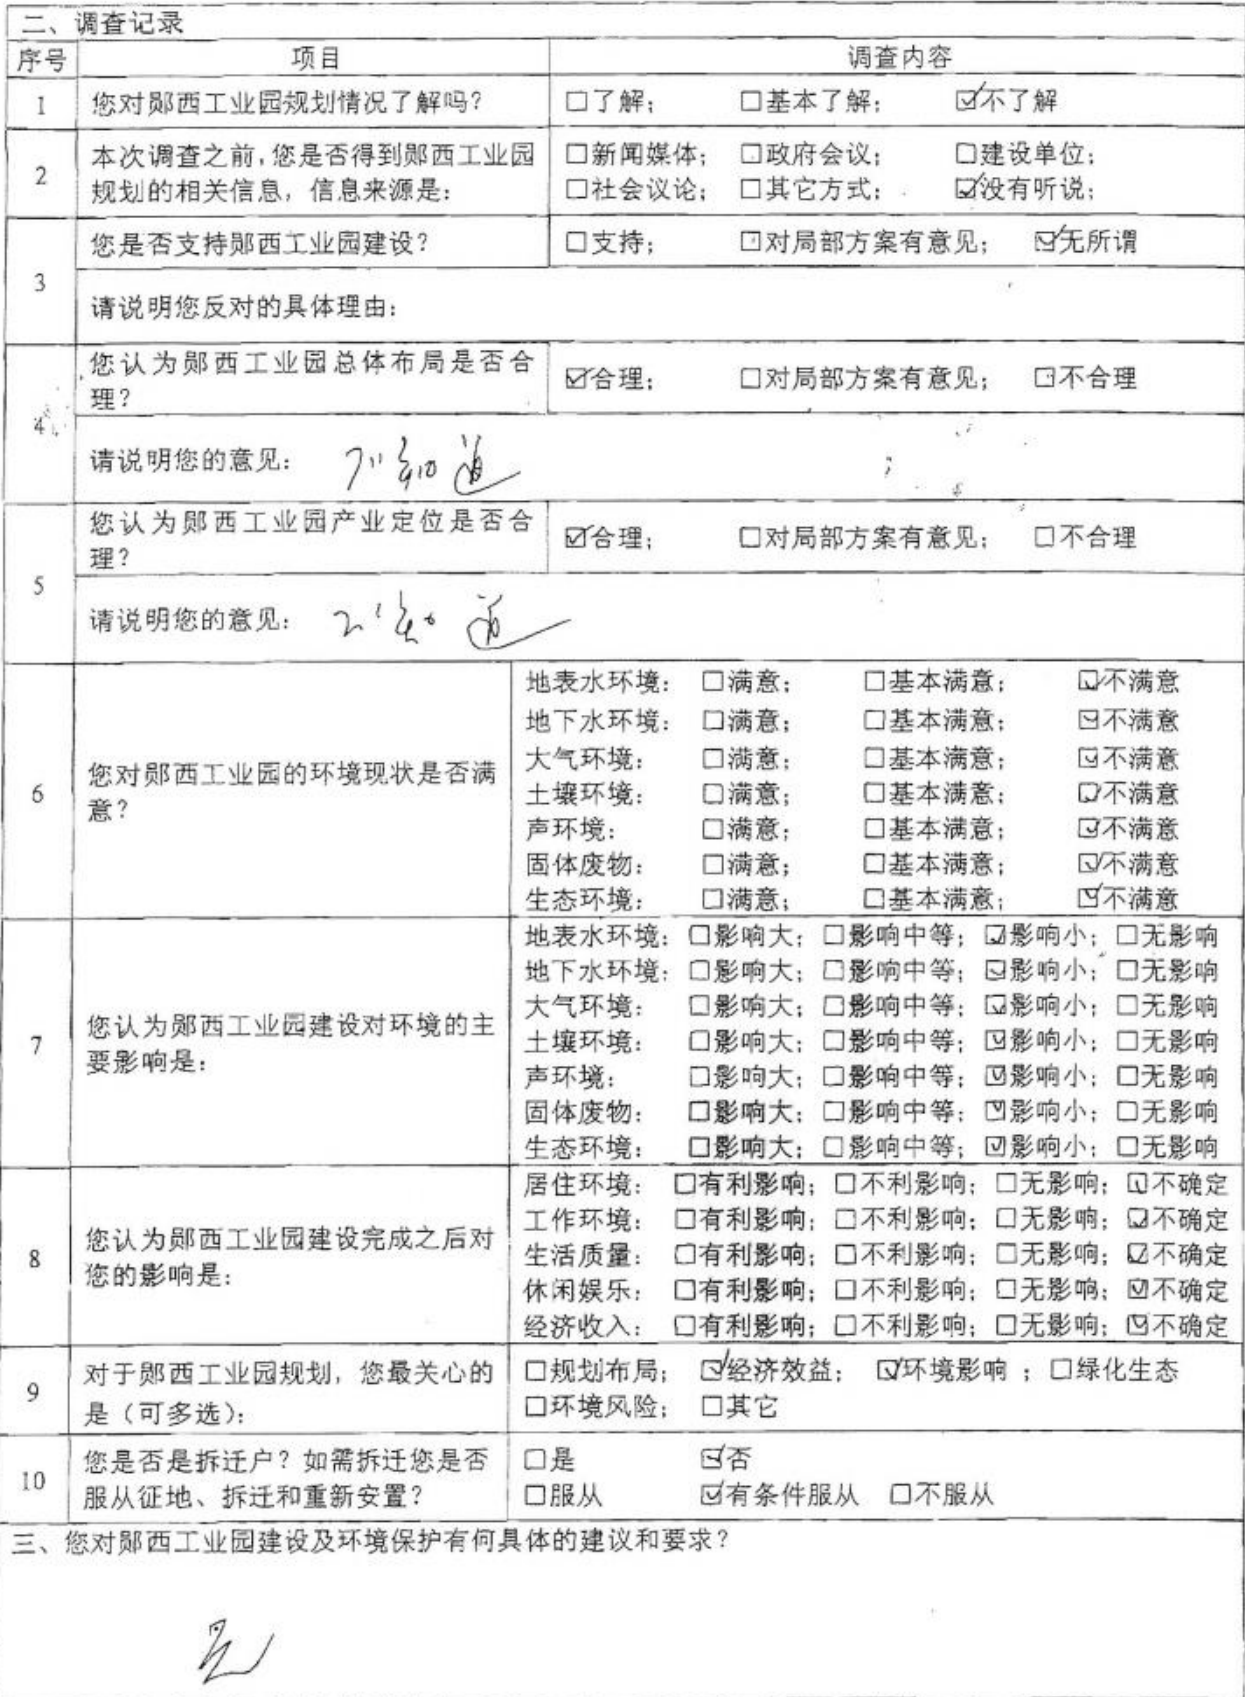 二、调查记录
序号 项目 调查内容
1 您对郧西工业园规划情况了解吗? □了解; □基本了解; ☑不了解
2 本次调查之前,您是否得到郧西工业园 □新闻媒体; □政府会议; □建设单位;
规划的相关信息,信息来源是: □社会议论; □其它方式; ☑没有听说;
3 您是否支持郧西工业园建设? □支持; □对局部方案有意见; ☑无所谓
请说明您反对的具体理由:
4 您认为郧西工业园总体布局是否合 ☑合理; □对局部方案有意见; □不合理
理?
请说明您的意见: 不知道
5 您认为郧西工业园产业定位是否合 ☑合理; □对局部方案有意见; □不合理
理?
请说明您的意见: 不知道
6 您对郧西工业园的环境现状是否满
意?
地表水环境: □满意; □基本满意; ☑不满意
地下水环境: □满意; □基本满意; ☑不满意
大气环境: □满意; □基本满意; ☑不满意
土壤环境: □满意; □基本满意; ☑不满意
声环境: □满意; □基本满意; ☑不满意
固体废物: □满意; □基本满意; ☑不满意
生态环境: □满意; □基本满意; ☑不满意
7 您认为郧西工业园建设对环境的主
要影响是:
地表水环境: □影响大; □影响中等; ☑影响小; □无影响
地下水环境: □影响大; □影响中等; ☑影响小; □无影响
大气环境: □影响大; □影响中等; ☑影响小; □无影响
土壤环境: □影响大; □影响中等; ☑影响小; □无影响
声环境: □影响大; □影响中等; ☑影响小; □无影响
固体废物: □影响大; □影响中等; ☑影响小; □无影响
生态环境: □影响大; □影响中等; ☑影响小; □无影响
8 您认为郧西工业园建设完成之后对
您的影响是:
居住环境: □有利影响; □不利影响; □无影响; ☑不确定
工作环境: □有利影响; □不利影响; □无影响; ☑不确定
生活质量: □有利影响; □不利影响; □无影响; ☑不确定
休闲娱乐: □有利影响; □不利影响; □无影响; ☑不确定
经济收入: □有利影响; □不利影响; □无影响; ☑不确定
9 对于郧西工业园规划,您最关心的 □规划布局; ☑经济效益; ☑环境影响 ; □绿化生态
是(可多选): □环境风险; □其它
10 您是否是拆迁户?如需拆迁您是否 □是 ☑否
服从征地、拆迁和重新安置? □服从 ☑有条件服从 □不服从
三、您对郧西工业园建设及环境保护有何具体的建议和要求?